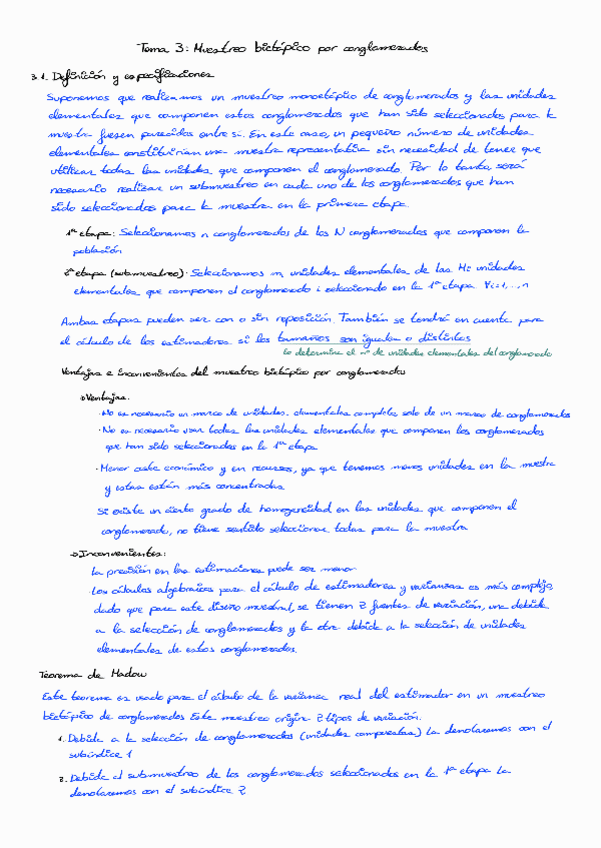 Tema 3: Muestreo bietápico por conglomerados
3.1. Definición y especificaciones
Suponemos que realizamos un muestreo monoetápico de conglomerados y las unidades
elementales que componen estos conglomerados que han sido seleccionados para la
muestra fuesen parecidos entre si. En este caso, un pequeño número de unidades
elementales constituirían una muestra representativa sin necesidad de tener que
utilizar todas las unidades que componen el conglomerado. Por lo tanto, será
necesario realizar un submuestreo en cada uno de los conglomerados que han
sido seleccionados para la muestra en la primera etapa.
1ª etapa: Seleccionamos n conglomerados de los N conglomerados que componen la
población
2ª etapa (submuestreo): Seleccionamos mi unidades elementales de las Mi unidades
elementales que componen el conglomerado i seleccionado en la 1ª etapa ∀i=1,...,n
Ambas etapas pueden ser con o sin reposición. También se tendrá en cuenta para
el cálculo de los estimadores si los tamaños son iguales o distintos
lo determina el nº de unidades elementales del conglomerado
Ventajas e inconvenientes del muestreo bietápico por conglomerados
Ventajas:
· No es necesario un marco de unidades elementales completo, solo de un marco de conglomerados
· No es necesario usar todas las unidades elementales que componen los conglomerados
que han sido seleccionados en la 1ª etapa
· Menor coste económico y en recursos, ya que tenemos menos unidades en la muestra
y estas están más concentradas
Si existe un cierto grado de homogeneidad en las unidades que componen el
conglomerado, no tiene sentido seleccionar todas para la muestra
Inconvenientes:
La precisión en las estimaciones puede ser menor
Los cálculos algebraicos para el cálculo de estimadores y varianzas es más complejo,
dado que para este diseño muestral, se tienen 2 fuentes de variación, una debida
a la selección de conglomerados y la otra debida a la selección de unidades
elementales de estos conglomerados.
Teorema de Madow
Este teorema es usado para el cálculo de la varianza real del estimador en un muestreo
bietápico de conglomerados Este muestreo origina 2 tipos de variación:
1. Debida a la selección de conglomerados (unidades compuestas) La denotaremos con el
subíndice 1
2. Debida al submuestreo de los conglomerados seleccionados en la 1ª etapa La
denotaremos con el subíndice 2